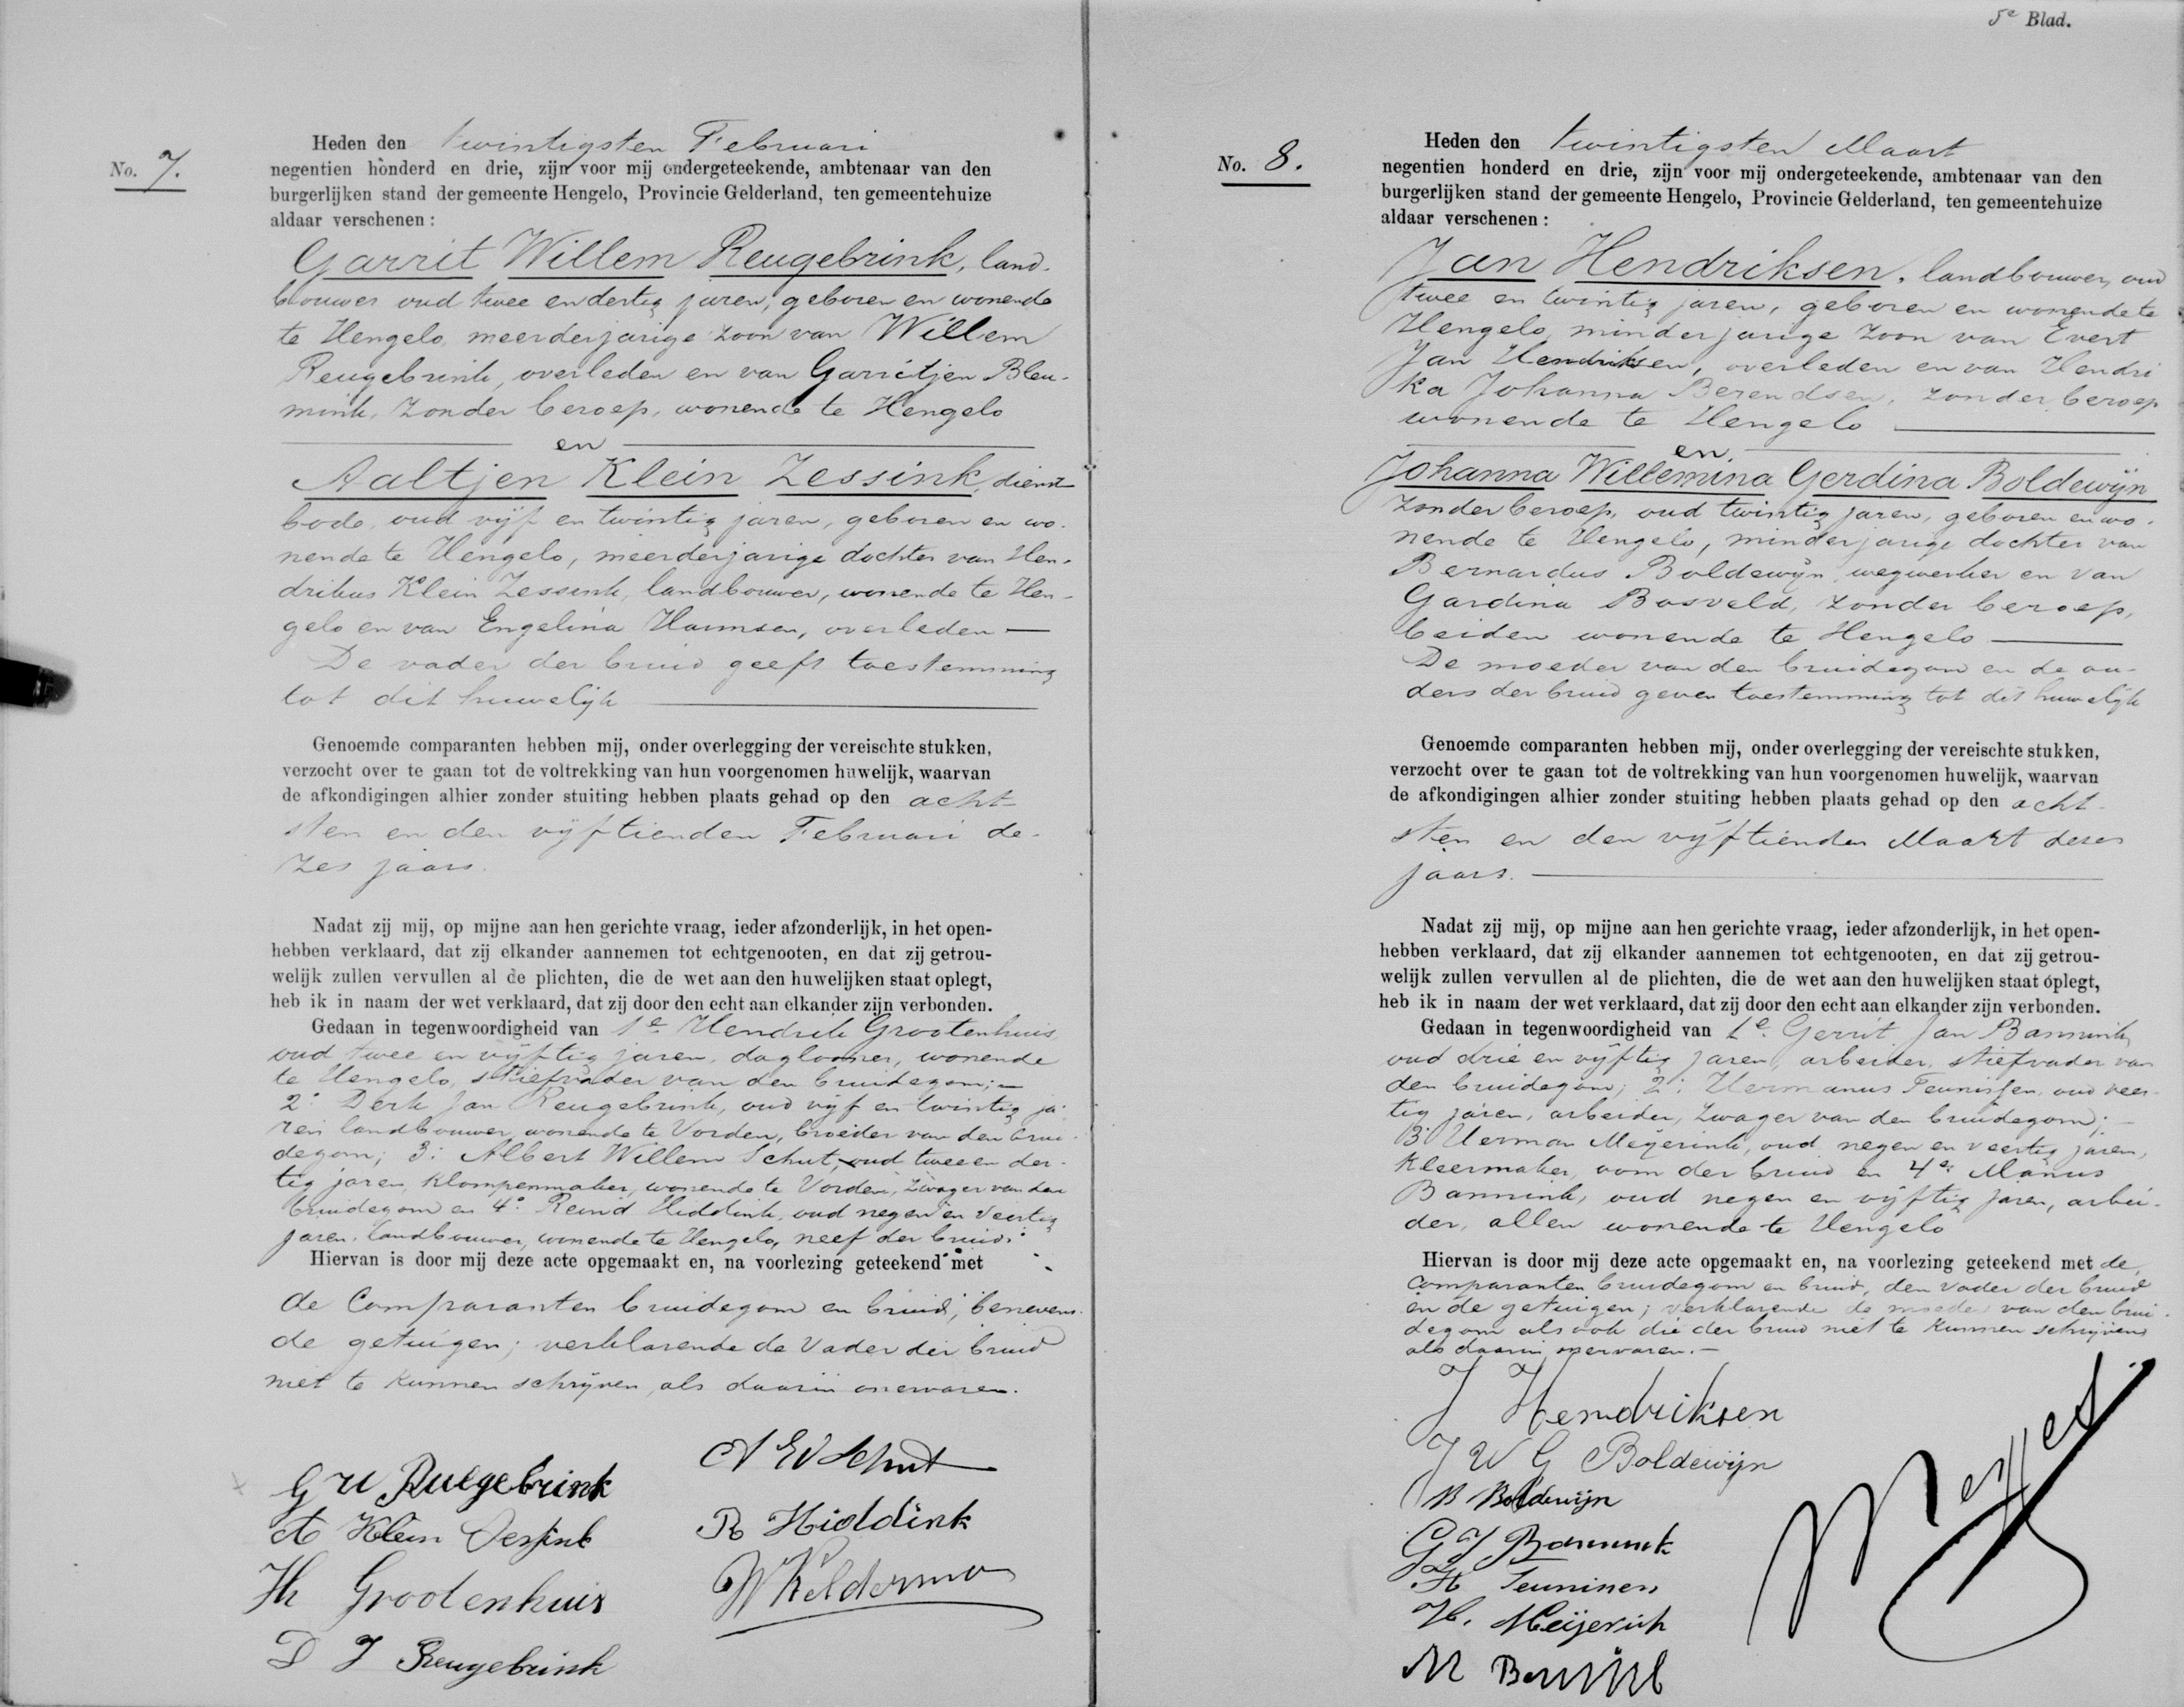 No. 7.
Heden den twintigsten Februari
negentien honderd en drie, zijn voor mij ondergeteekende, ambtenaar van den
burgerlijken stand der gemeente Hengelo, Provincie Gelderland, ten gemeentehuize
aldaar verschenen:
Garrit Willem Reugebrink, land-
bouwer oud twee en dertig jaren, geboren en wonende
te Hengelo, meerderjarige zoon van Willem
Reugebrink, overleden en van Garritjen Bleu-
mink, zonder beroep, wonende te Hengelo
en
Aaltjen Klein Zessink, dienst
bode, oud vijf en twintig jaren, geboren en wo-
nende te Hengelo, meerderjarige dochter van Hen-
drikus Klein Zessink, landbouwer, wonende te Hen-
gelo en van Engelina Harmsen, overleden —
De vader der bruid geeft toestemming
tot dit huwelijk
Genoemde comparanten hebben mij, onder overlegging der vereischte stukken,
verzocht over te gaan tot de voltrekking van hun voorgenomen huwelijk, waarvan
de afkondigingen alhier zonder stuiting hebben plaats gehad op den acht-
sten en den vijftienden Februari de-
zes jaars.
Nadat zij mij, op mijne aan hen gerichte vraag, ieder afzonderlijk, in het open-
hebben verklaard, dat zij elkander aannemen tot echtgenooten, en dat zij getrou-
welijk zullen vervullen al de plichten, die de wet aan den huwelijken staat oplegt,
heb ik in naam der wet verklaard, dat zij door den echt aan elkander zijn verbonden.
Gedaan in tegenwoordigheid van 1e Hendrik Grootenhuis
oud twee en vijftig jaren, daglooner, wonende
te Hengelo, stiefvader van den bruidegom; —
2e Derk Jan Reugebrink, oud vijf en twintig ja-
ren landbouwer wonende te Vorden, broeder van den brui-
degom; 3e Albert Willem Schut, oud twee en der-
tig jaren, klompenmaker, wonende te Vorden, zwager van den
bruidegom en 4e Reind Hiddink, oud negen en veertig
jaren, landbouwer, wonende te Hengelo, neef der bruid.
Hiervan is door mij deze acte opgemaakt en, na voorlezing geteekend met
de Comparanten bruidegom en bruid, benevens
de getuigen; verklarende de Vader der bruid
niet te kunnen schrijven, als daarin onervaren.
G W Reugebrink
A Klein Zessink
Hk Grootenhuis
D J Reugebrink
A W Schut
R Hiddink
W Kelderman
5e Blad.
No. 8.
Heden den twintigsten Maart
negentien honderd en drie, zijn voor mij ondergeteekende, ambtenaar van den
burgerlijken stand der gemeente Hengelo, Provincie Gelderland, ten gemeentehuize
aldaar verschenen:
Jan Hendriksen, landbouwer, oud
twee en twintig jaren, geboren en wonende te
Hengelo, minderjarige zoon van Evert
Jan Hendriksen, overleden en van Hendri
ka Johanna Berendsen, zonder beroep
wonende te Hengelo
en
Johanna Willemina Gerdina Boldewijn
zonder beroep, oud twintig jaren, geboren en wo-
nende te Hengelo, minderjarige dochter van
Bernardus Boldewijn, wegwerker en van
Gardina Bosveld, zonder beroep,
beiden wonende te Hengelo
De moeder van den bruidegom en de ou-
ders der bruid geven toestemming tot dit huwelijk
Genoemde comparanten hebben mij, onder overlegging der vereischte stukken,
verzocht over te gaan tot de voltrekking van hun voorgenomen huwelijk, waarvan
de afkondigingen alhier zonder stuiting hebben plaats gehad op den acht-
sten en den vijftienden Maart dezes
jaars.
Nadat zij mij, op mijne aan hen gerichte vraag, ieder afzonderlijk, in het open-
hebben verklaard, dat zij elkander aannemen tot echtgenooten, en dat zij getrou-
welijk zullen vervullen al de plichten, die de wet aan den huwelijken staat oplegt,
heb ik in naam der wet verklaard, dat zij door den echt aan elkander zijn verbonden.
Gedaan in tegenwoordigheid van 1e Gerrit Jan Bannink,
oud drie en vijftig jaren, arbeider, stiefvader van
den bruidegom; 2e Hermanus Teunissen, oud veer-
tig jaren, arbeider, zwager van den bruidegom; —
3e Herman Meijerink, oud negen en veertig jaren,
kleermaker, oom der bruid en 4e Manus
Bannink, oud negen en vijftig jaren, arbei-
der, allen wonende te Hengelo
Hiervan is door mij deze acte opgemaakt en, na voorlezing geteekend met de
Comparanten bruidegom en bruid, den vader der bruid
en de getuigen; verklarende de moeder van den brui-
degom alsook die der bruid niet te kunnen schrijven
als daarin onervaren. —
J Hendriksen
J W G Boldewijn
B Boldewijn
G J Bannink
H Teunissen
H. Meijerink
M Bannink